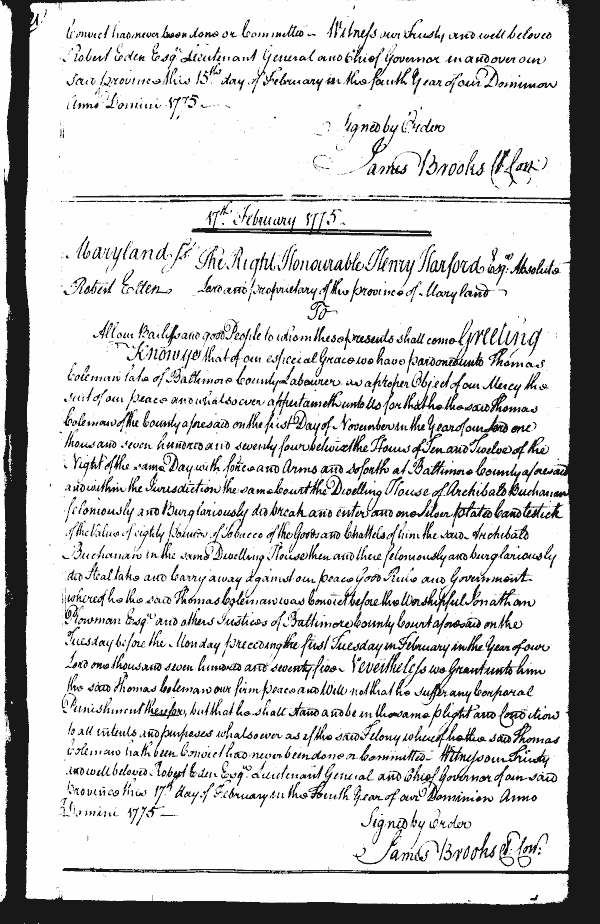 Convict had never been done or Committed – Witness our Trusty and well beloved
Robert Eden Esqr. Lieutenant General and Chief Governor in and over our
said province this 15th day of February in the fourth Year of our Dominion
Anno Domini 1775 –
Signed by Order
James Brooks Cl. Con.
17th February 1775.
Maryland ss. The Right Honourable Henry Harford Esqr. Absolute
Robert Eden Lord and proprietary of the province of Maryland
To
All our Bailiffs and good People to whom these presents shall come Greeting
Know ye that of our especial Grace we have pardoned unto Thomas
Coleman late of Baltimore County Labourer as a proper Object of our Mercy the
suit of our peace and whatsoever appertaineth unto Us for that he the said Thomas
Coleman of the County aforesaid on the first Day of November in the Year of our Lord one
thousand seven hundred and seventy four betwixt the Hours of Ten and Twelve of the
Night of the same Day with force and Arms and so forth at Baltimore County aforesaid
and within the Jurisdiction the same Court the Dwelling House of Archibald Buchanan
feloniously and Burglariously did break and enter and one Silver plated Candlestick
of the Value of eighty pounds of Tobacco of the Goods and Chattels of him the said Archibald
Buchanan in the same Dwelling House then and there feloniously and burglariously
did Steal take and Carry away against our peace Good Rule and Government
whereof he the said Thomas Coleman was Convict before the Worshipful Jonathan
Plowman Esqr. and others Justices of Baltimore County Court aforesaid on the
Tuesday before the Monday preceeding the first Tuesday in February in the Year of our
Lord one thousand seven hundred and seventy five – Nevertheless we Grant unto him
the said Thomas Coleman our firm peace and Will not that he suffer any Corporal
Punishment therefor, but that he shall stand and be in the same plight and Condition
to all intents and purposes whatsoever as if the said Felony whereof he the said Thomas
Coleman hath been Convict had never been done or Committed – Witness our Trusty
and well beloved Robert Eden Esqr. Lieutenant General and Chief Governor of our said
Province this 17th day of February in the Fourth Year of our Dominion Anno
Domini 1775 –
Signed by Order
James Brooks Cl. Con.